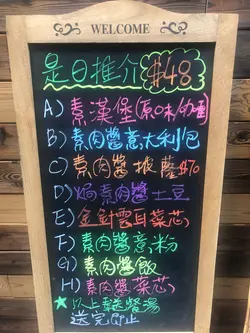 WELCOME
是日推介 $48
A) 素漢堡(原味
B) 素肉醬意大利包
C) 素肉醬披薩$70
D) 焗素肉醬土豆
E) 金針雲耳菜芯
F) 素肉醬意粉
G) 素肉醬飯
H) 素肉醬菜芯
★以上奉送餐湯
送完即止